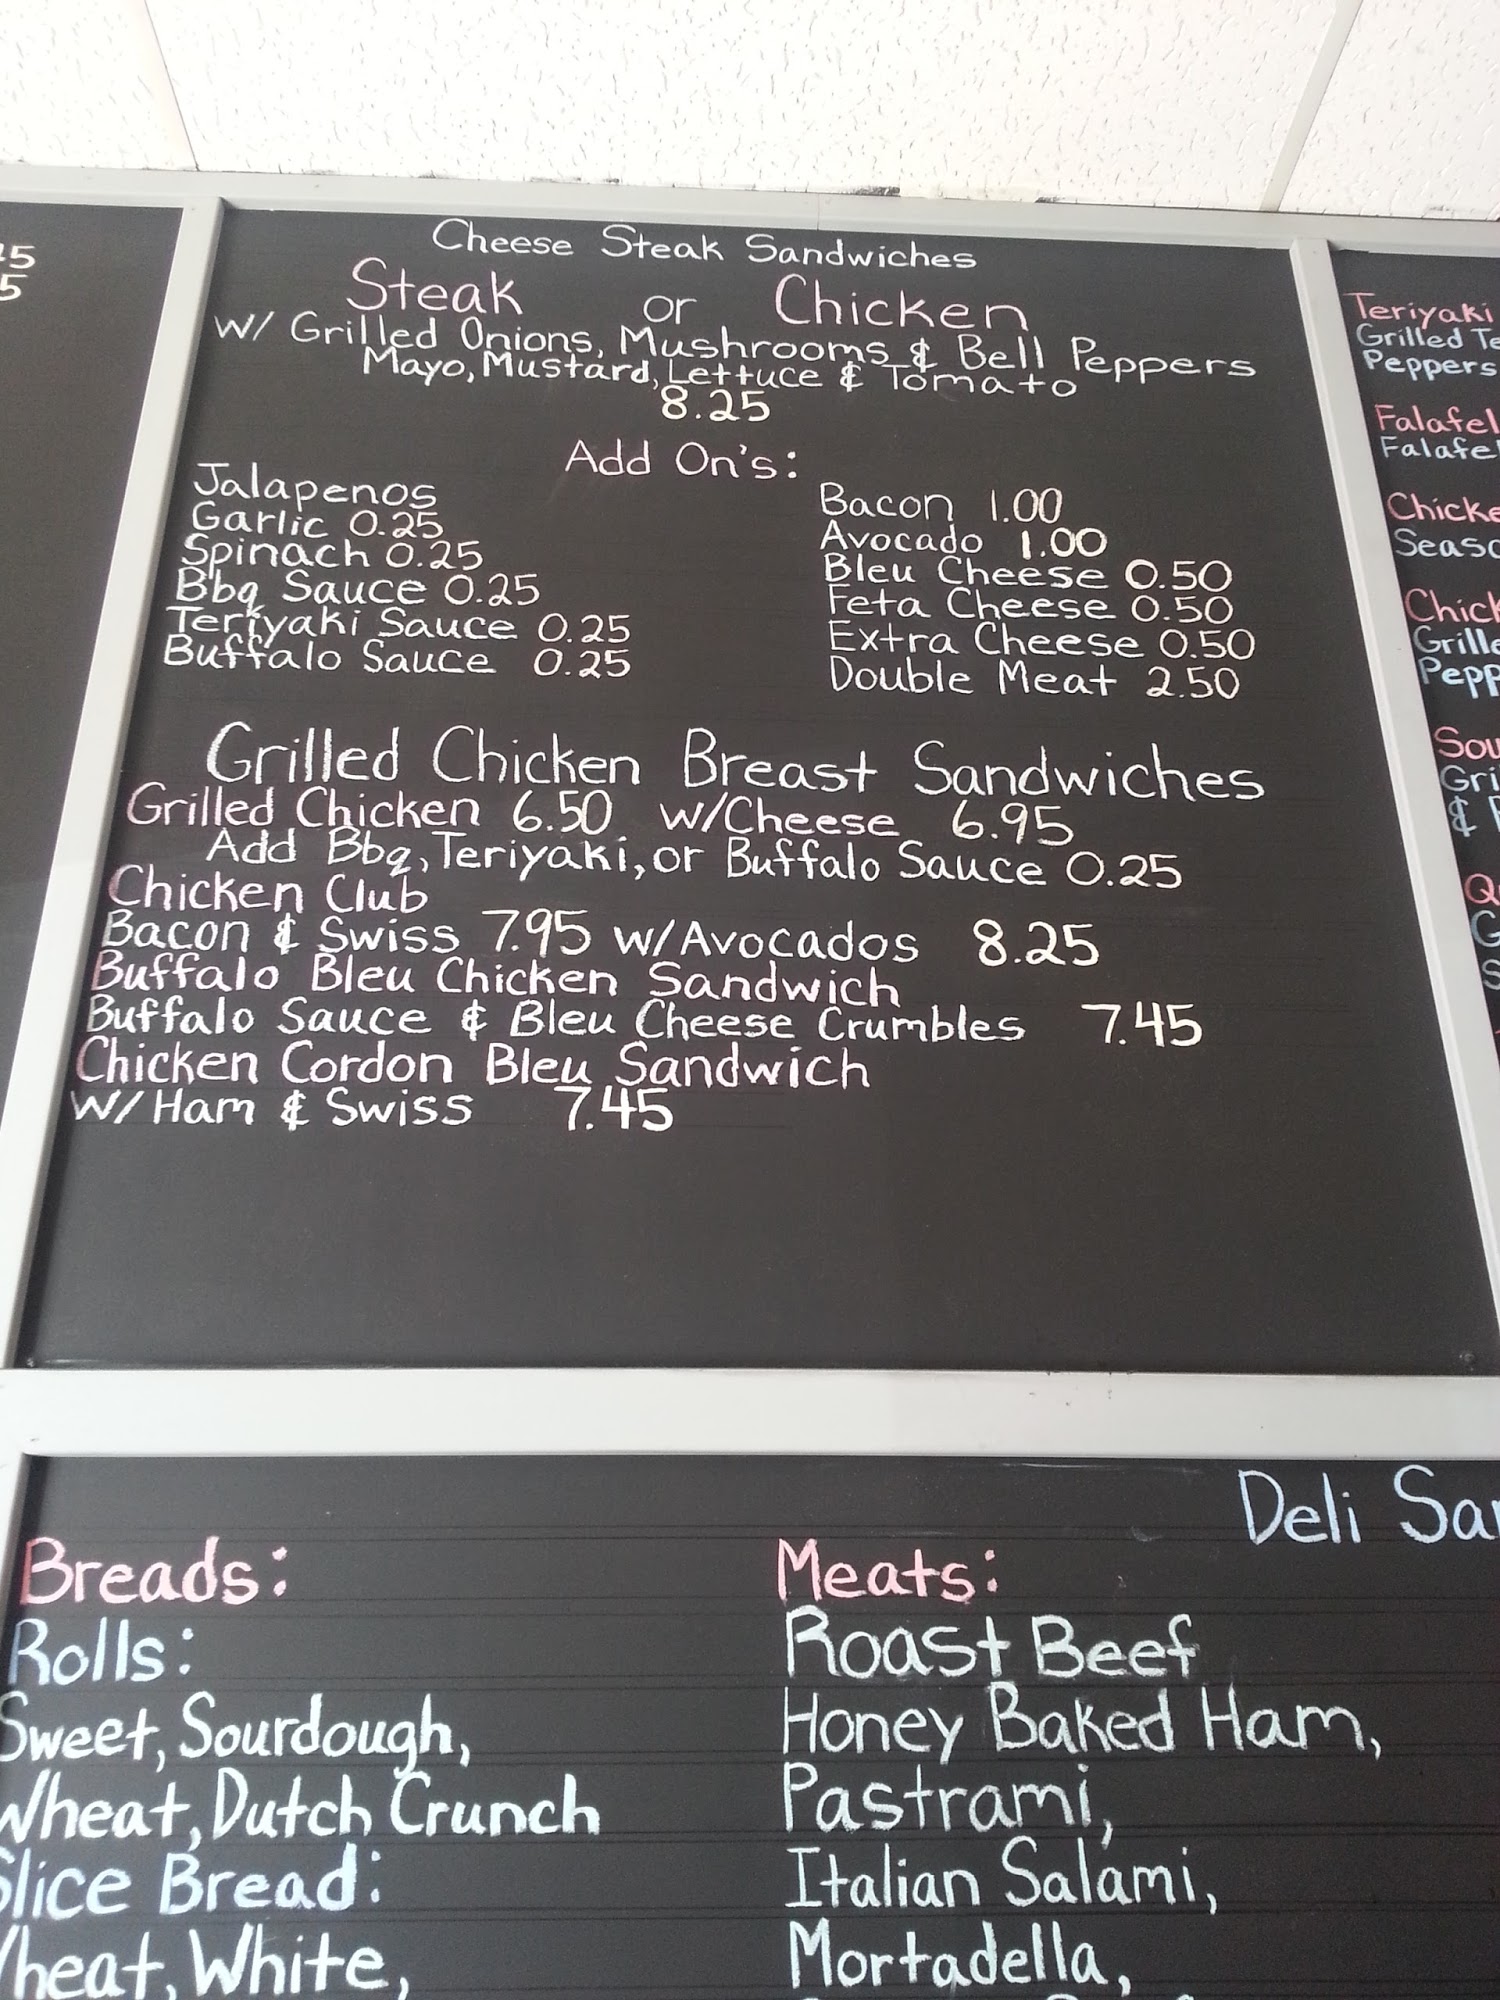 Cheese Steak Sandwiches
Steak or Chicken
W/ Grilled Onions, Mushrooms & Bell Peppers
Mayo, Mustard, Lettuce & Tomato
8.25
Add On's:
Jalapenos
Garlic 0.25
Spinach 0.25
Bbq Sauce 0.25
Teriyaki Sauce 0.25
Buffalo Sauce 0.25
Bacon 1.00
Avocado 1.00
Bleu Cheese 0.50
Feta Cheese 0.50
Extra Cheese 0.50
Double Meat 2.50
Grilled Chicken Breast Sandwiches
Grilled Chicken 6.50 w/Cheese 6.95
Add Bbq, Teriyaki, or Buffalo Sauce 0.25
Chicken Club
Bacon & Swiss 7.95 w/Avocados 8.25
Buffalo Bleu Chicken Sandwich
Buffalo Sauce & Bleu Cheese Crumbles 7.45
Chicken Cordon Bleu Sandwich
W/ Ham & Swiss 7.45
Teriyaki
Grilled Te
Peppers
Falafel
Falafe
Chicke
Seaso
Chick
Grille
Pepp
Sou
Gri
&
Deli Sa
Breads:
Rolls:
Sweet, Sourdough,
Wheat, Dutch Crunch
Slice Bread:
Wheat, White,
Meats:
Roast Beef
Honey Baked Ham,
Pastrami,
Italian Salami,
Mortadella,